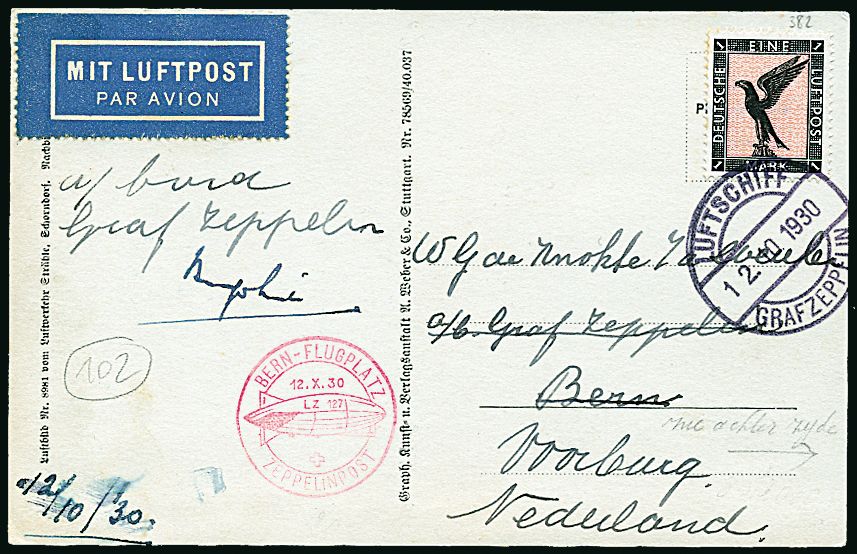 MIT LUFTPOST
PAR AVION
a/ bord
Graf Zeppelin
102
12/10/30.
BERN-FLUGPLATZ
12.X.30
LZ 127
ZEPPELINPOST
Luftbild Nr. 8981 vom Luftverkehr Strähle, Schorndorf.
Graph. Kunst- u. Verlagsanstalt A. Weber & Co., Stuttgart. Nr. 78569/40.037
382
EINE
DEUTSCHE
LUFTPOST
1 MARK 1
LUFTSCHIFF
12.10 1930
GRAF ZEPPELIN
W G de
a/b. Graf Zeppelin
Bern
achter zyde
Voorburg
Nederland.